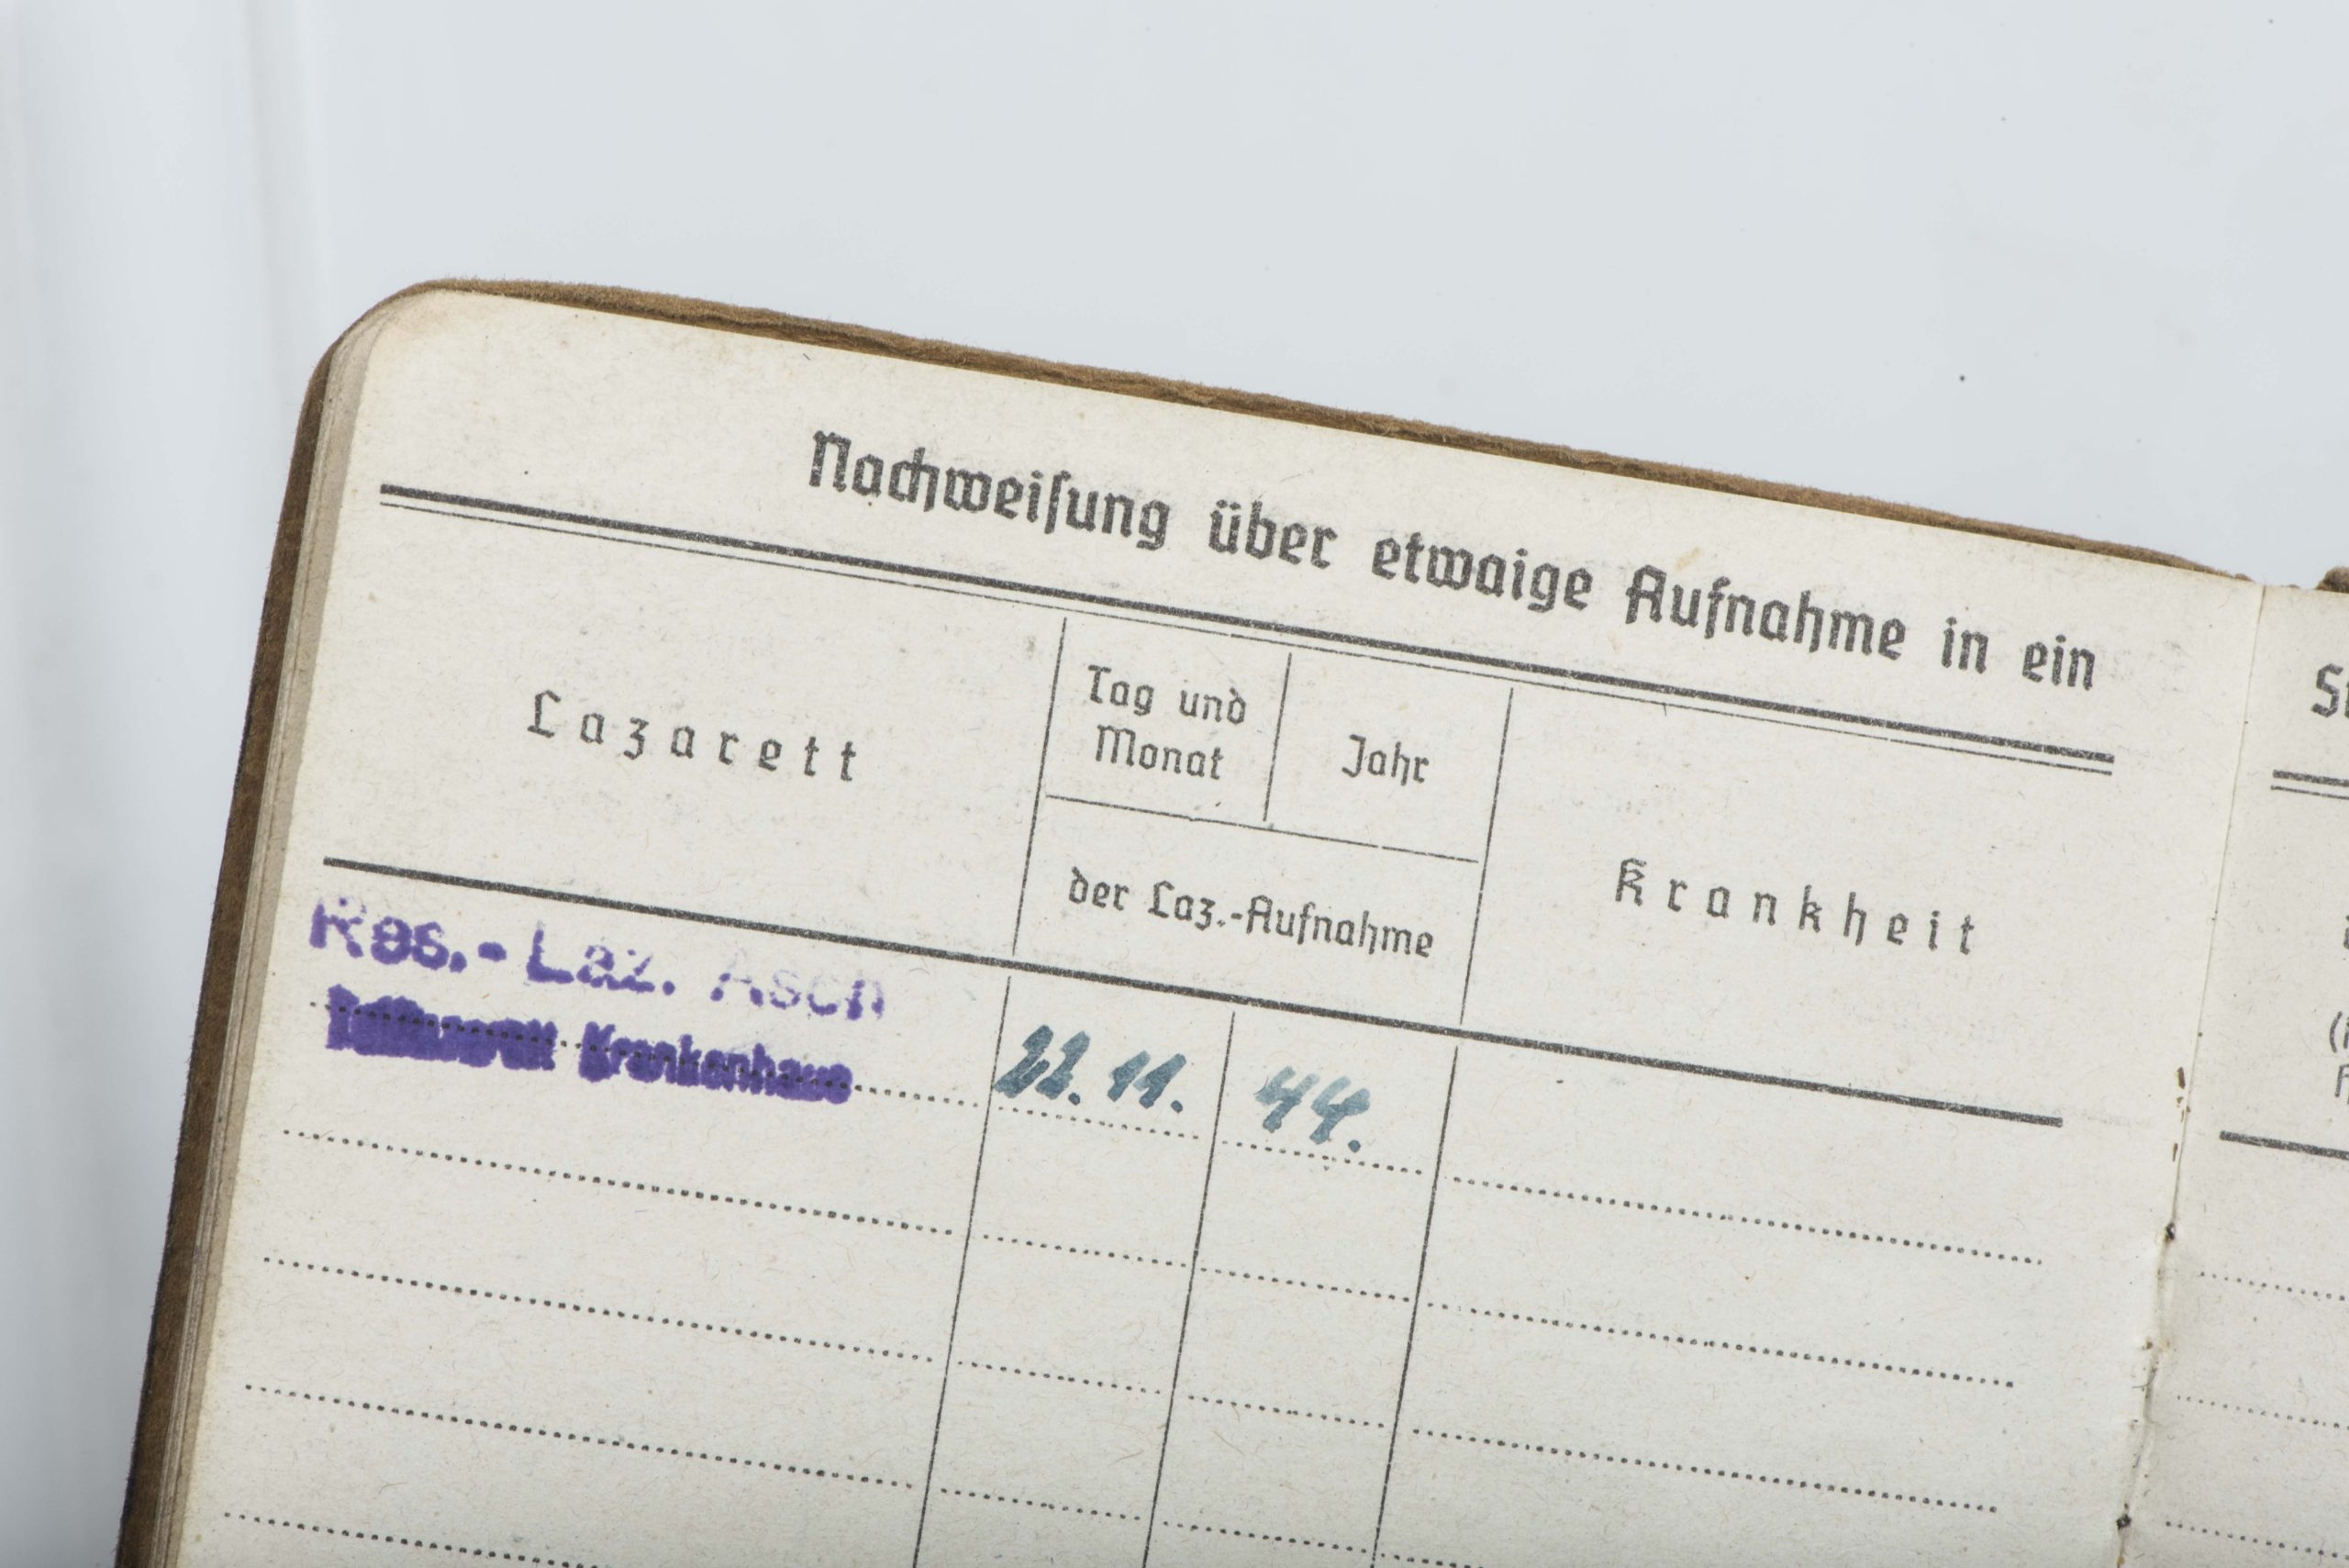 Nachweisung über etwaige Aufnahme in ein
Lazarett
Tag und
Monat
Jahr
der Laz.-Aufnahme
Krankheit
Res.-Laz. Asch
Krankenhaus
22. 11. 44.